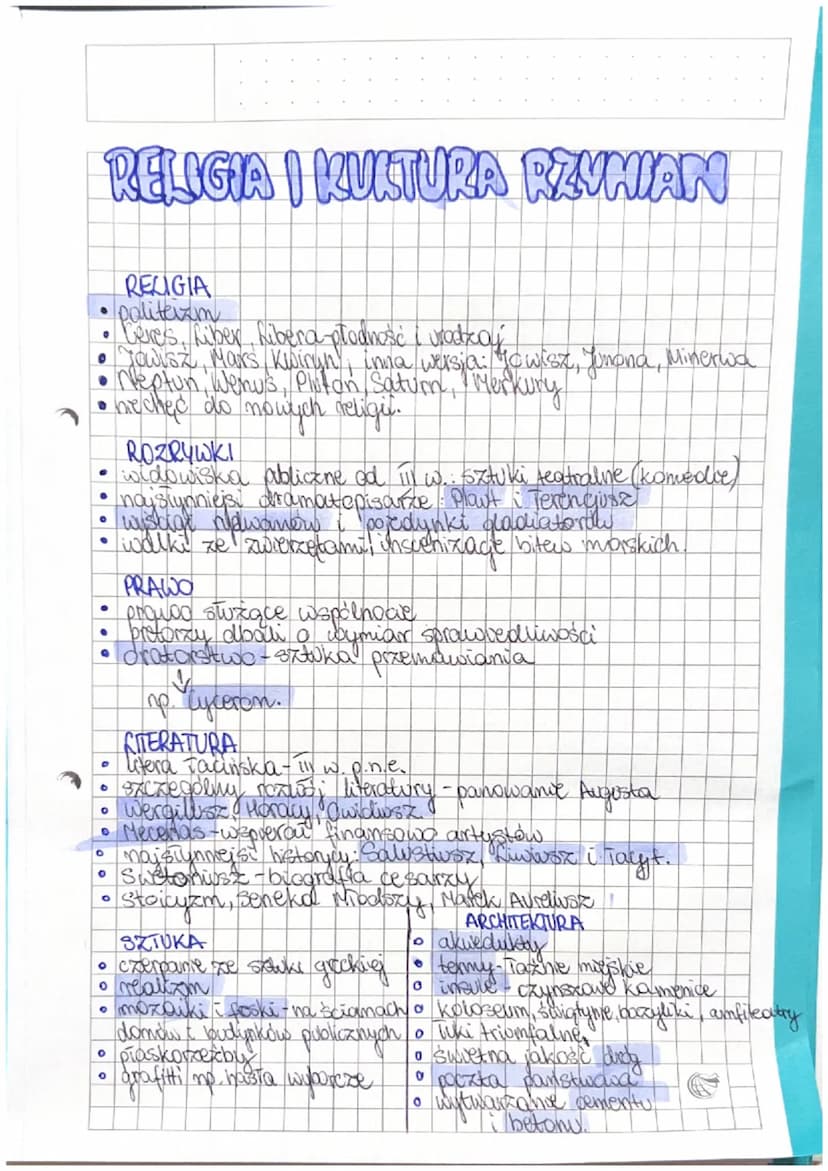 RELIGIA I KULTURA RZYMIAN
RELIGIA
• politeizm
• Ceres, Liber, Libera-płodność i urodzaj
• Jowisz, Mars, Kwiryn, inna wersja: Jowisz, Junona, Minerwa
• Neptun, Wenus, Pluton, Saturn, Merkury
• niechęć do nowych religii.
ROZRYWKI
• widowiska publiczne od III w.: sztuki teatralne (komedie)
• najsłynniejsi dramatopisarze: Plaut i Terencjusz
• wyścigi rydwanów i pojedynki gladiatorów
• walki ze zwierzętami, inscenizacje bitew morskich.
PRAWO
• prawo służące wspólnocie
• pretorzy dbali o wymiar sprawiedliwości
• oratorstwo-sztuka przemawiania
↓
np. Cyceron.
LITERATURA
• litera łacińska-III w. p.n.e.
• szczególny rozwój literatury-panowanie Augusta
• Wergiliusz, Horacy, Owidiusz
• Mecenas-wspierał finansowo artystów
• najsłynniejsi historycy: Salustiusz, Liwiusz i Tacyt.
• Swetoniusz-biografia cesarzy
• Stoicyzm, Seneka Młodszy, Marek Aureliusz
SZTUKA
• czerpanie ze sztuki greckiej
• realizm
• mozaiki i freski-na ścianach
domów i budynków publicznych
• płaskorzeźby
• grafitti np. hasła wyborcze
ARCHITEKTURA
• akwedukty
• termy-łaźnie miejskie
• insule-czynszowe kamienice
• koloseum, świątynie, bazyliki, amfiteatry
• łuki triomfalne,
• świetna jakość dróg
• poczta państwowa
• wytwarzanie cementu
i betonu.